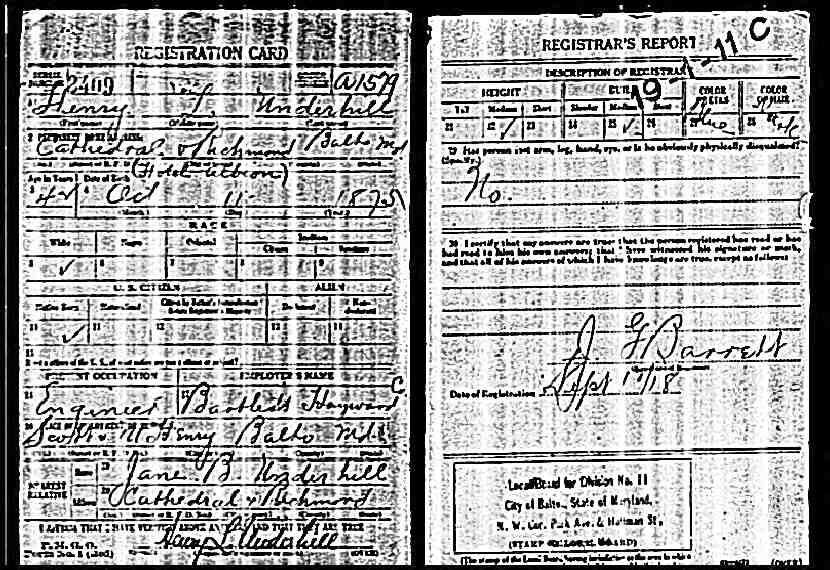 REGISTRATION CARD
2409
A1579
Henry Underhill
Cathedral & Richmond Balto Md
(Hotel Albion)
Age in Years Date of Birth
42 Oct 11 1875
(Month) (Day) (Year)
RACE
White Negro Oriental Indian
Citizen
5 ✓ 6 7 8 9
U. S. CITIZEN ALIEN
Native Born
✓ 11 12
PRESENT OCCUPATION EMPLOYER'S NAME
Engineer Bartlett Hayward Co
Scott & McHenry Balto Md
NEAREST RELATIVE
Name Jane B Underhill
Cathedral & Richmond
I AFFIRM THAT I HAVE VERIFIED ABOVE AND THAT THEY ARE TRUE
Henry L. Underhill
(OVER)
REGISTRAR'S REPORT
19-1-11 C
DESCRIPTION OF REGISTRANT
HEIGHT BUILD COLOR OF EYES COLOR OF HAIR
Tall Medium Short Slender Medium Stout
21 22 ✓ 23 24 25 ✓ 26 27 Blue 28
29 Has person lost arm, leg, hand, eye, or is he obviously physically disqualified?
(Specify.)
No.
30 I certify that my answers are true; that the person registered has read or has
had read to him his own answers; that I have witnessed his signature or mark,
and that all of his answers of which I have knowledge are true, except as follows:
J G Barrett
Date of Registration Sept 12/18
Local Board for Division No. 11
City of Balto., State of Maryland,
N. W. Cor. Park Ave. & Hoffman St.,
(STAMP OF LOCAL BOARD)
(The stamp of the Local Board having jurisdiction of the area in which
(OVER)